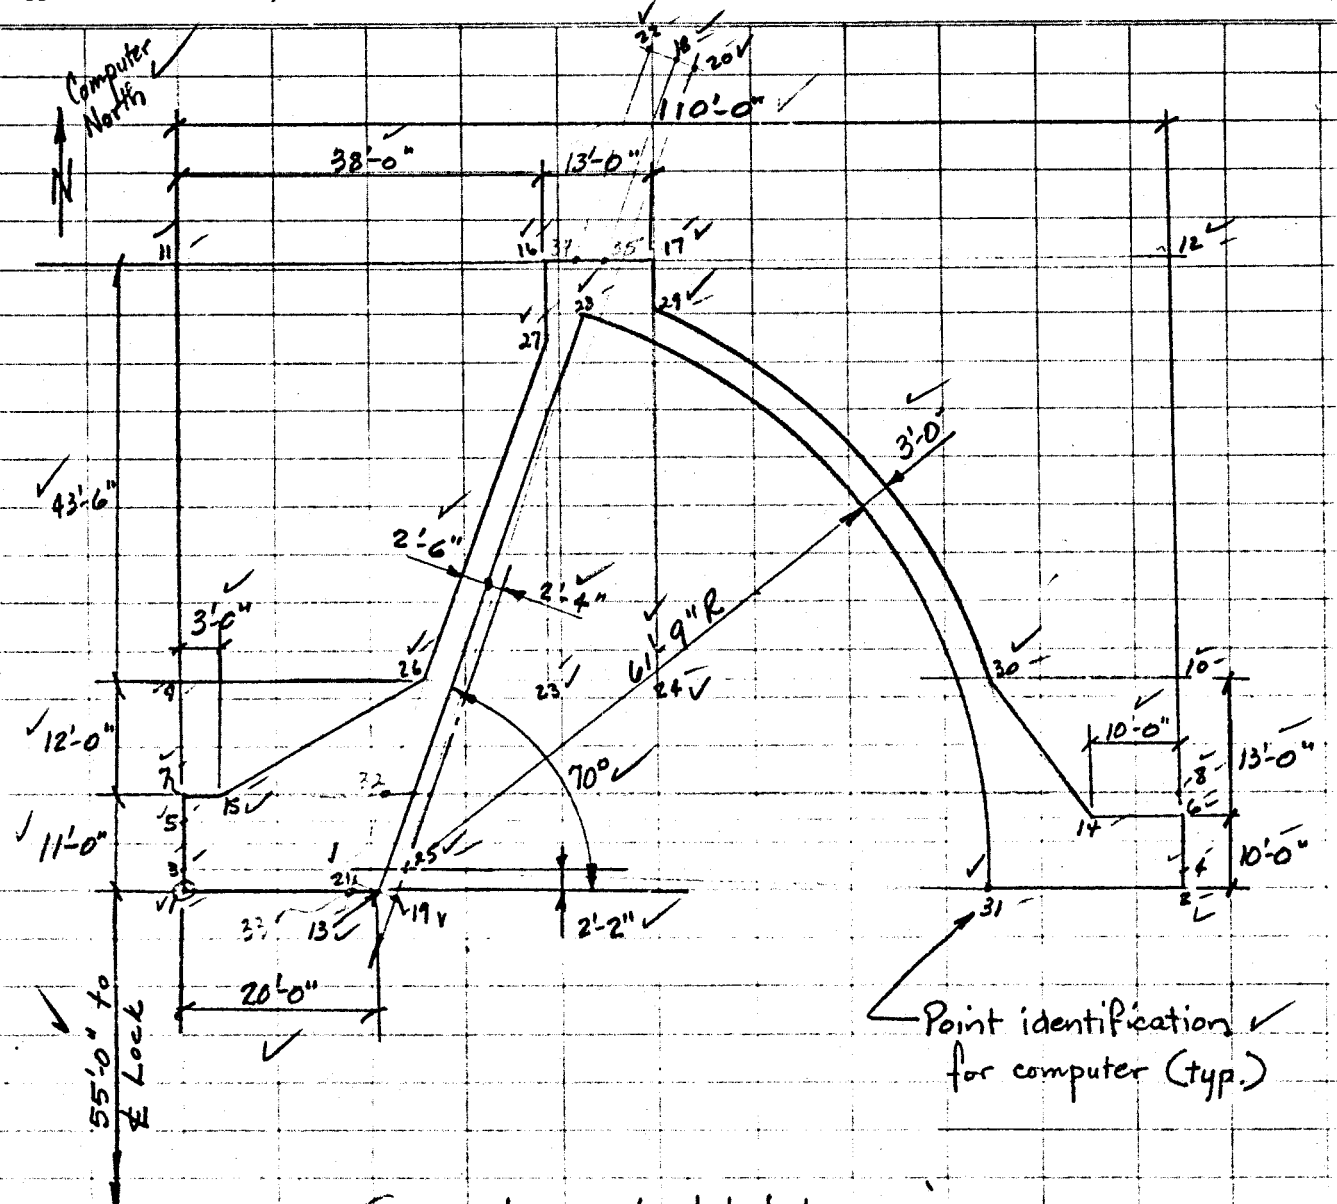 Computer
North
N
22
18
20
110'-0"
38'-0"
13'-0"
11
16
37
35
17
12
28
29
27
3'-0"
43'-6"
2'-6"
2'-4"
3'-0"
61'-9" R
26
23
24
30
10
9
12'-0"
10'-0"
13'-0"
7
15
32
70°
8
6
5
14
11'-0"
3
25
4
10'-0"
1
21
33
13
19
2'-2"
31
2
20'-0"
55'-0" to
℄ Lock
Point identification
for computer (typ.)